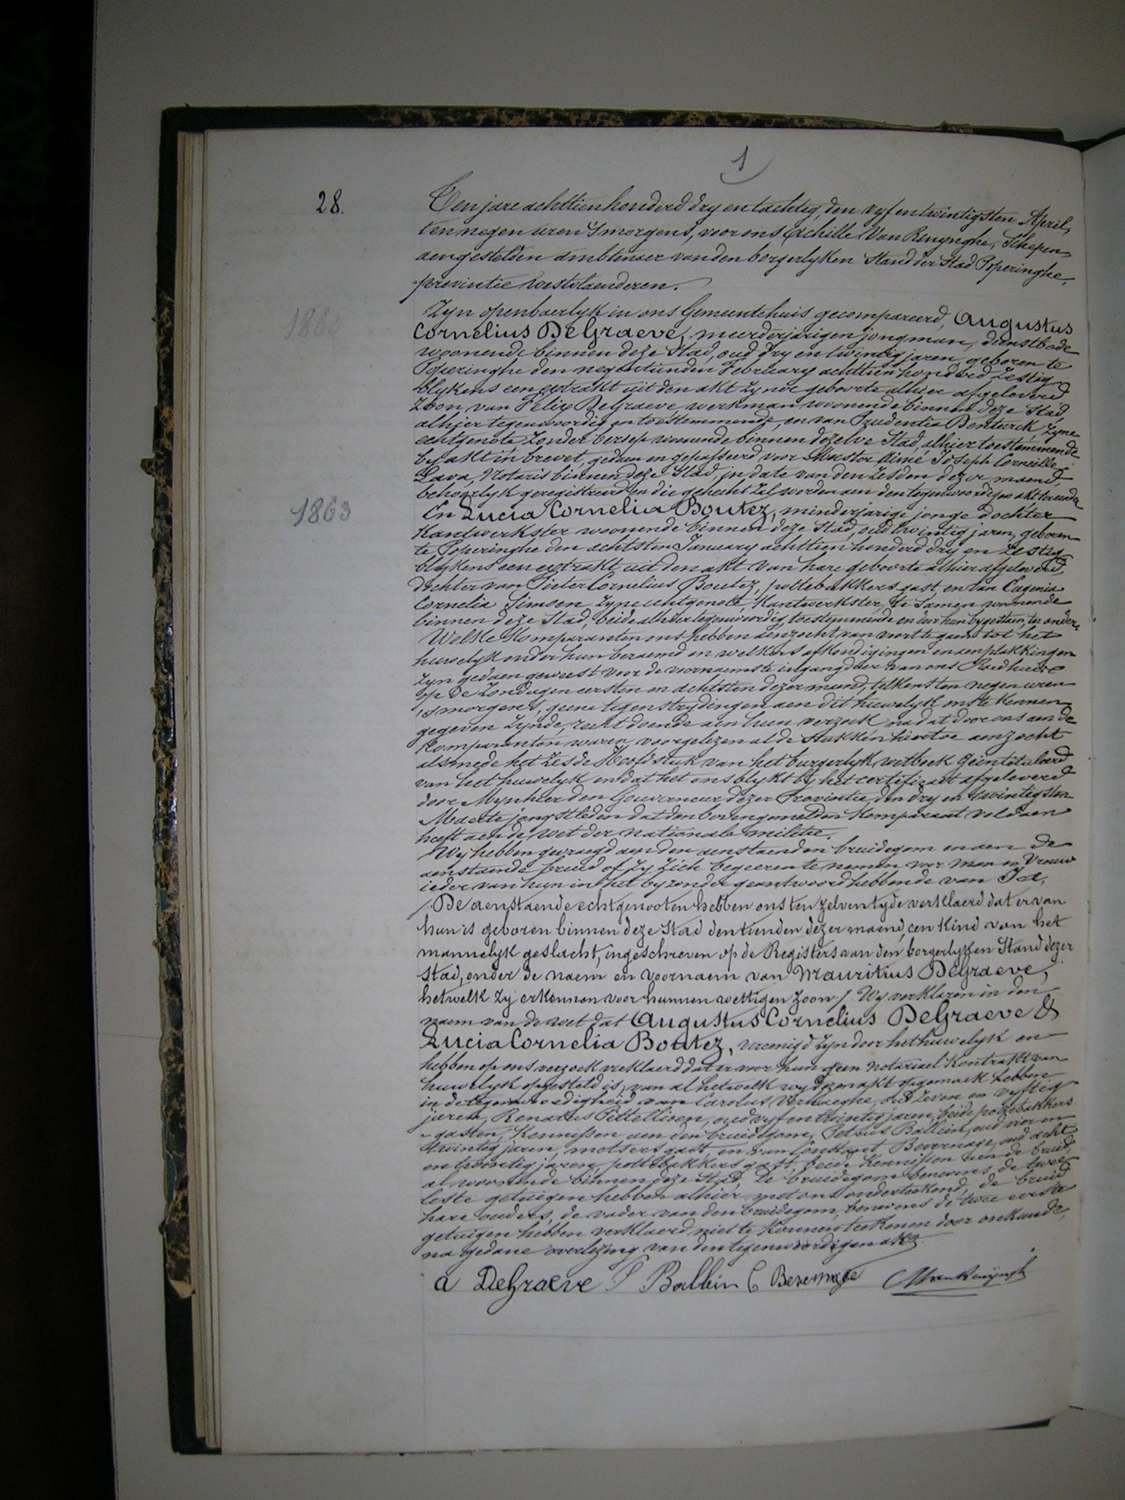 1
28.
Ten jare achttien honderd dry en tachtig, den vyf en twintigsten April,
ten negen uren 's morgens, voor ons Achille Van Renynghe, Schepen
aengestelden ambtenaer van den borgerlyken Stand der Stad Poperinghe,
provintie Westvlaenderen.
Zyn openbaerlyk in ons Gemeentehuis gecompareerd, Augustus
1860
Cornelius DeGraeve, meerderjarigen jongman, dienstbode
woonende binnen deze Stad, oud dry en twintig jaren, geboren te
Poperinghe den negentienden February achttien honderd zestig
blykens een extrakt uit den akt zyner geboorte alhier afgeleverd
Zoon van Felix DeGraeve werkman woonende binnen deze Stad,
alhier tegenwoordig en toestemmende, en van Prudentia Bentein zyne
echtgenote zonder beroep woonende binnen dezelve Stad, alhier toestemmende
by akt in brevet, gedaen en gepasseerd voor Meester Aimé Joseph Corneille
Lava, Notaris binnen deze Stad, in date van den dezer maend
behoorlyk geregistreerd en die gehecht zal worden aen den tegenwoordigen akt
1863
En Lucia Cornelia Boutez, minderjarige jonge dochter
Kantwerkster woonende binnen deze Stad, oud twintig jaren, geboren
te Poperinghe den achtsten January achttien honderd dry en zestig
blykens een extrakt uit den akt van hare geboorte alhier afgeleverd,
dochter van Pieter Cornelius Boutez, pottebakkersgast, en van Eugenia
Cornelia Simoen, zyne echtgenote, Kantwerkster, te samen woonende
binnen deze Stad, beide alhier tegenwoordig toestemmende en door hun bygestaen, ten andere
Welke Komparanten ons hebben aenzocht van voort te gaen tot het
huwelyk onder hun beraemd en welkers afkondigingen en aenplakkingen
zyn gedaen geweest voor de voornaemste ingangdeur van ons Raedhuis
op de Zondagen eersten en achtsten dezer maend, telkens ten negen uren
's morgens, geene tegenstrydingen aen dit huwelyk ons te kennen
gegeven zynde, recht doende aen hun verzoek nadat door ons aen de
Komparanten waren voorgelezen al de stukken hiertoe aenzocht
alsmede het zesde Hoofdstuk van het burgerlyk wetboek geintituleerd
van het huwelyk en dat het ons blykt by het certificaet afgeleverd
door Mynheer den Gouverneur dezer Provintie, den dry en twintigsten
Maerte jongstleden dat den bovengemelden Komparant voldaen
heeft aen de wet der nationale militie.
Wy hebben gevraegd aen den aenstaenden bruidegom en aen de
aenstaende bruid of zy zich begeeren te nemen voor man en vrouw
ieder van hun in het byzonder geantwoord hebbende van Ja.
/ De aenstaende echtgenooten hebben ons ten zelven tyde verklaerd dat er van
hun is geboren binnen deze Stad den tienden dezer maend, een Kind van het
mannelyk geslacht, ingeschreven op de Registers van den borgerlyken Stand dezer
Stad, onder de naem en voornaem van Mauritius DeGraeve,
hetwelk zy erkennen voor hunnen wettigen zoon / Wy verklaren in den
naem van de wet dat Augustus Cornelius DeGraeve &
Lucia Cornelia Boutez, vereenigd zyn door het huwelyk en
hebben op ons verzoek verklaerd dat er voor hun geen notariael Kontrakt van
huwelyk opgesteld is, van al hetwelk wy dezen akt opgemaekt hebben
in de tegenwoordigheid van Carolus Vermaeghe, oud zeven en vyftig
jaren, Renatus Pittellioen, oud vyf en twintig jaren, beide pottebakkers
gasten, Kennissen aen den bruidegom, Petrus Ballein, oud vier en
twintig jaren, metsers gast, en van Constant Bevernage, oud acht
en twintig jaren, pottebakkers gast, beide Kennissen aen de bruid,
al woonende binnen deze Stad, de bruidegom benevens de twee
leste getuigen hebben alhier met ons onderteekend, de bruid
hare ouders, de vader van den bruidegom, benevens de twee eerste
getuigen hebben verklaerd niet te kunnen teekenen door onkunde,
na gedane voorlezing van den tegenwoordigen akt.
a DeGraeve P Ballein C Bevernage AVanRenynghe